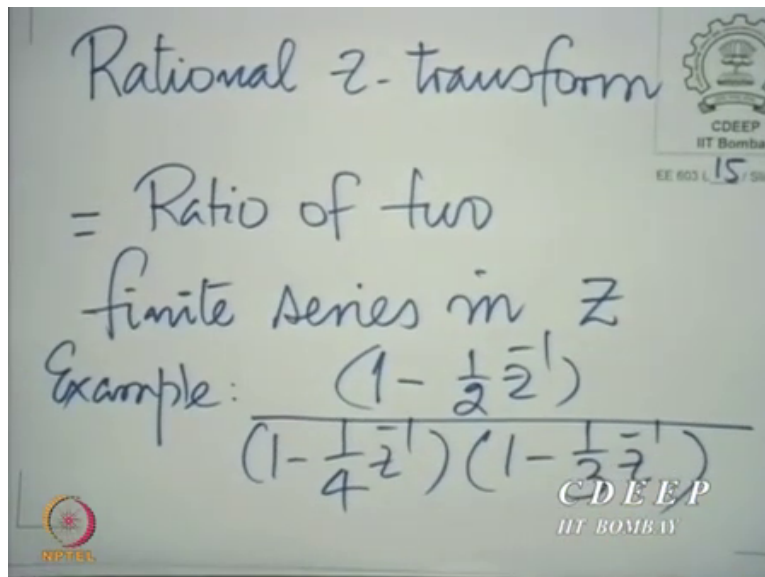 Rational z-transform
CDEEP
IIT Bomba
EE 603 L 15 / Sli
= Ratio of two
finite series in Z
Example: (1 - 1/2 z⁻¹)
(1 - 1/4 z⁻¹) (1 - 1/3 z⁻¹)
CDEEP
IIT BOMBAY
NPTEL